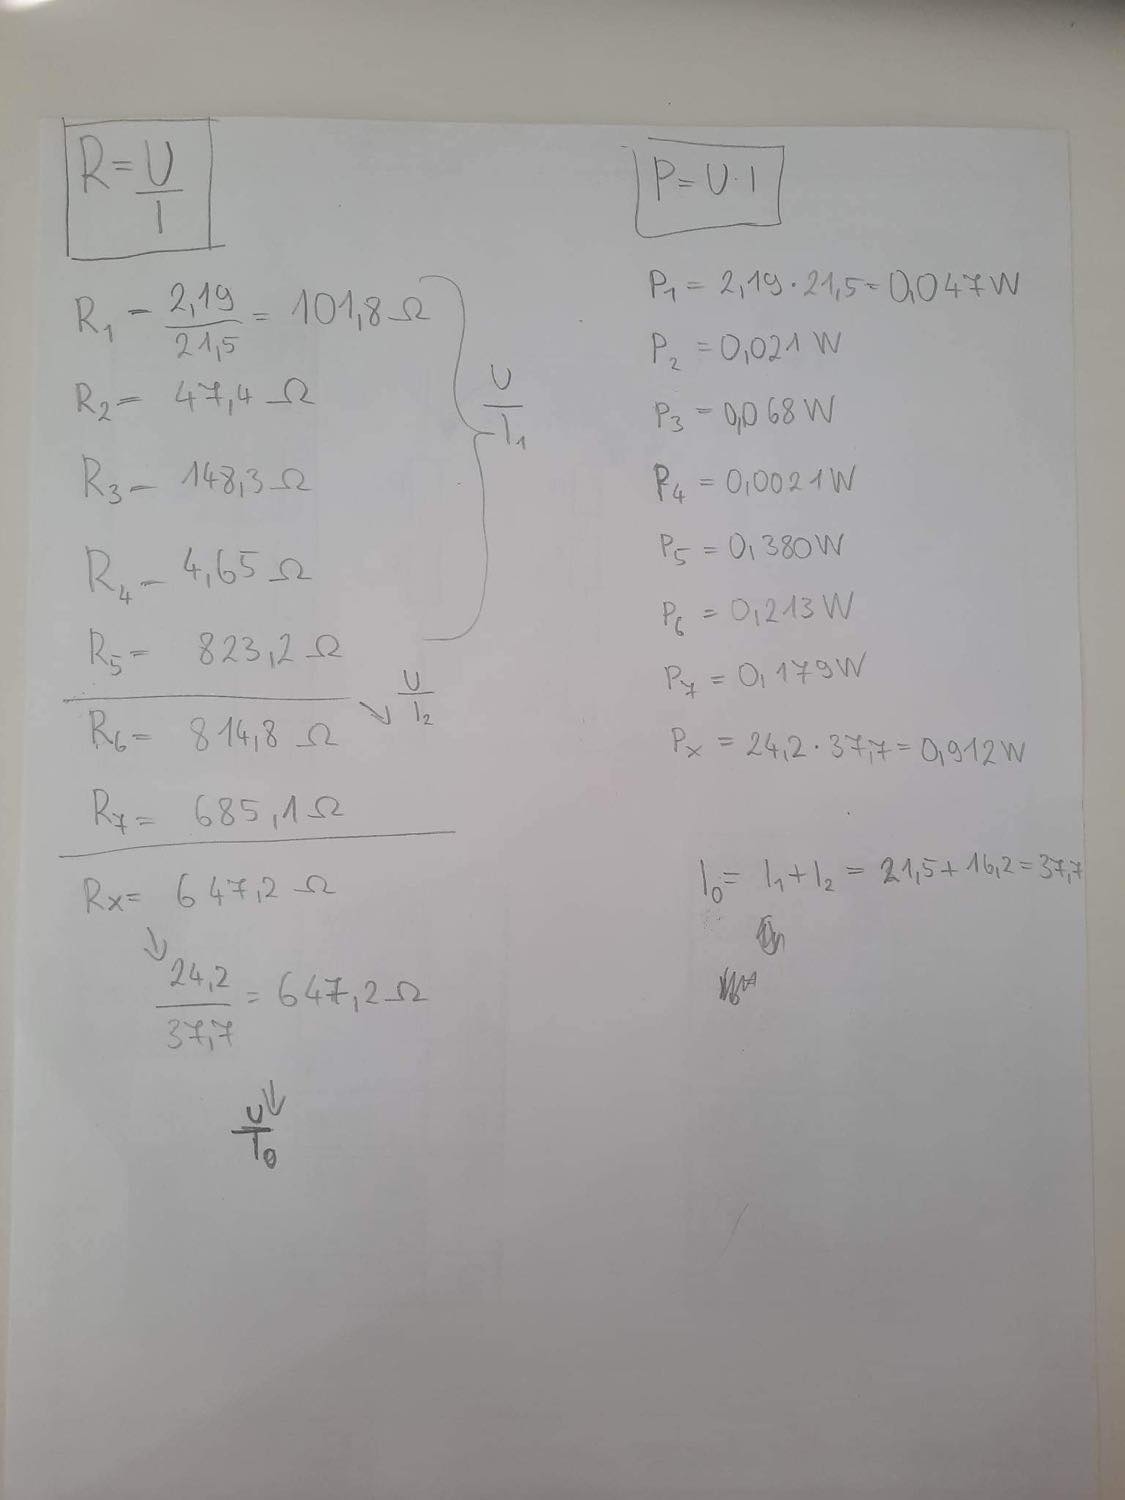 R = U / I
R1 - 2,19 / 21,5 = 101,8 Ω
R2 = 47,4 Ω
R3 - 148,3 Ω
R4 - 4,65 Ω
R5 = 823,2 Ω
U / I1
U / I2
R6 = 814,8 Ω
R7 = 685,1 Ω
Rx = 647,2 Ω
24,2 / 37,7 = 647,2 Ω
U / I0
P = U · I
P1 = 2,19 · 21,5 = 0,047 W
P2 = 0,021 W
P3 = 0,068 W
P4 = 0,0021 W
P5 = 0,380 W
P6 = 0,213 W
P7 = 0,179 W
Px = 24,2 · 37,7 = 0,912 W
I0 = I1 + I2 = 21,5 + 16,2 = 37,7